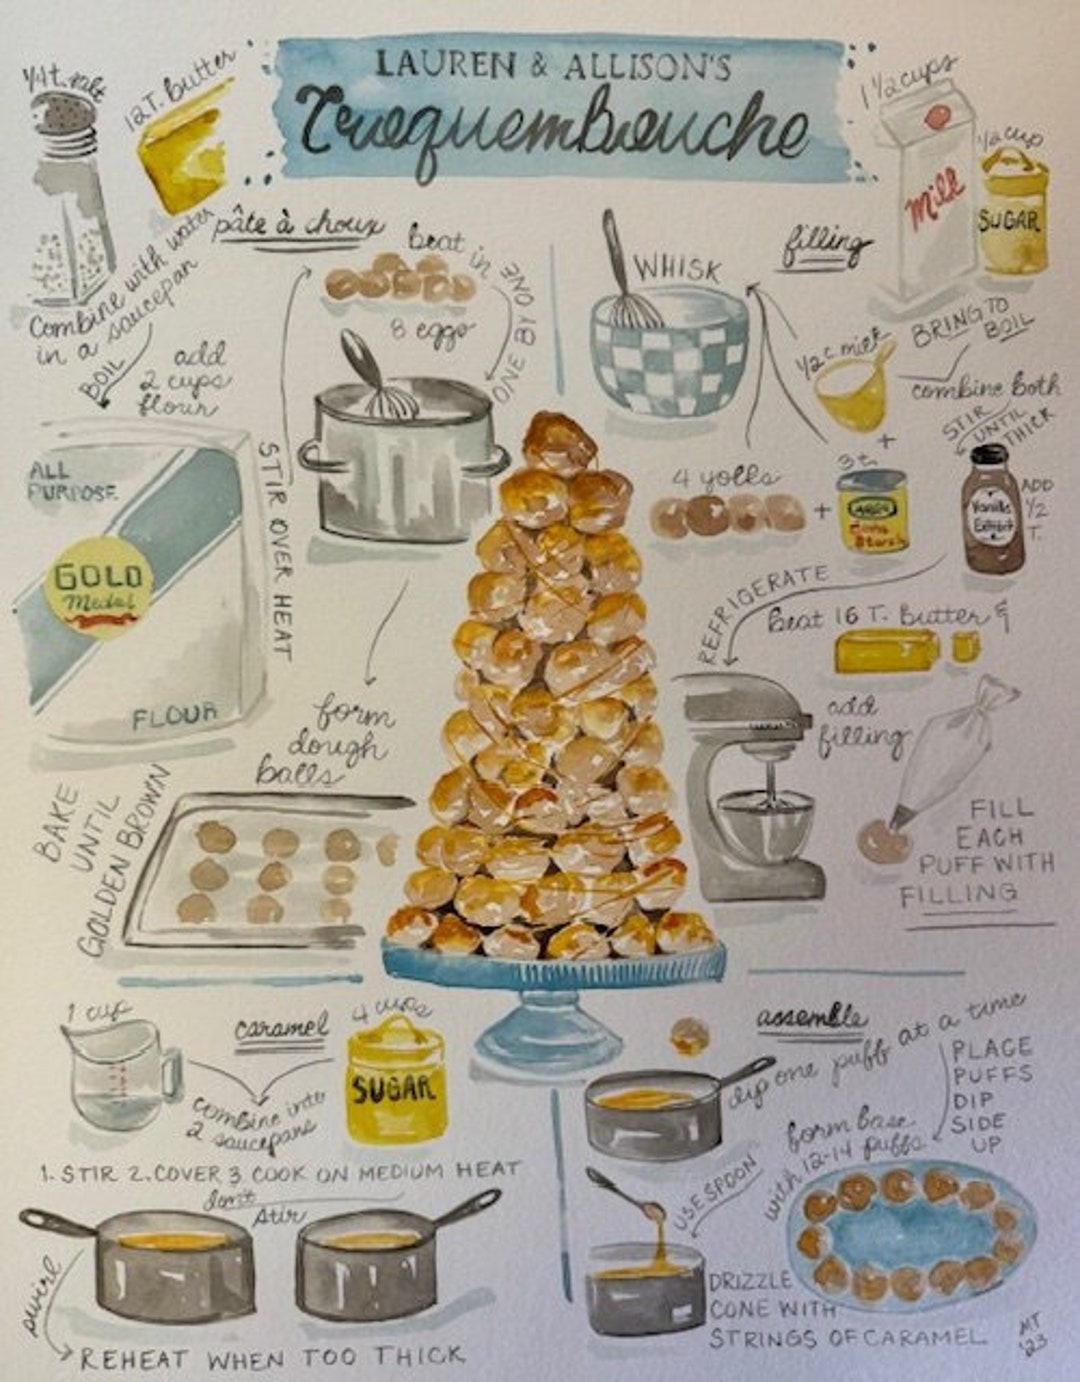 LAUREN & ALLISON'S
Croquembouche
1/4 t. salt
12 T. butter
pâte à choux
Combine with water
in a saucepan
BOIL
add
2 cups
flour
ALL
PURPOSE
GOLD
Medal
FLOUR
STIR OVER HEAT
beat in
8 eggs
ONE BY ONE
form
dough
balls
BAKE
UNTIL
GOLDEN BROWN
filling
1 1/2 cups
Milk
1/2 cup
SUGAR
BRING TO
BOIL
WHISK
1/2 c milk
combine both
+
4 yolks
+
3 t
ARGO
Corn
Starch
STIR
UNTIL
THICK
Vanilla
Extract
ADD
1/2
T.
REFRIGERATE
beat 16 T. butter &
add
filling
FILL
EACH
PUFF WITH
FILLING
caramel
1 cup
4 cups
SUGAR
combine into
2 saucepans
1. STIR 2. COVER 3 COOK ON MEDIUM HEAT
don't
stir
swirl
REHEAT WHEN TOO THICK
assemble
dip one puff at a time
PLACE
PUFFS
DIP
SIDE
UP
form base
with 12-14 puffs
USE SPOON
DRIZZLE
CONE WITH
STRINGS OF CARAMEL
MT
'23